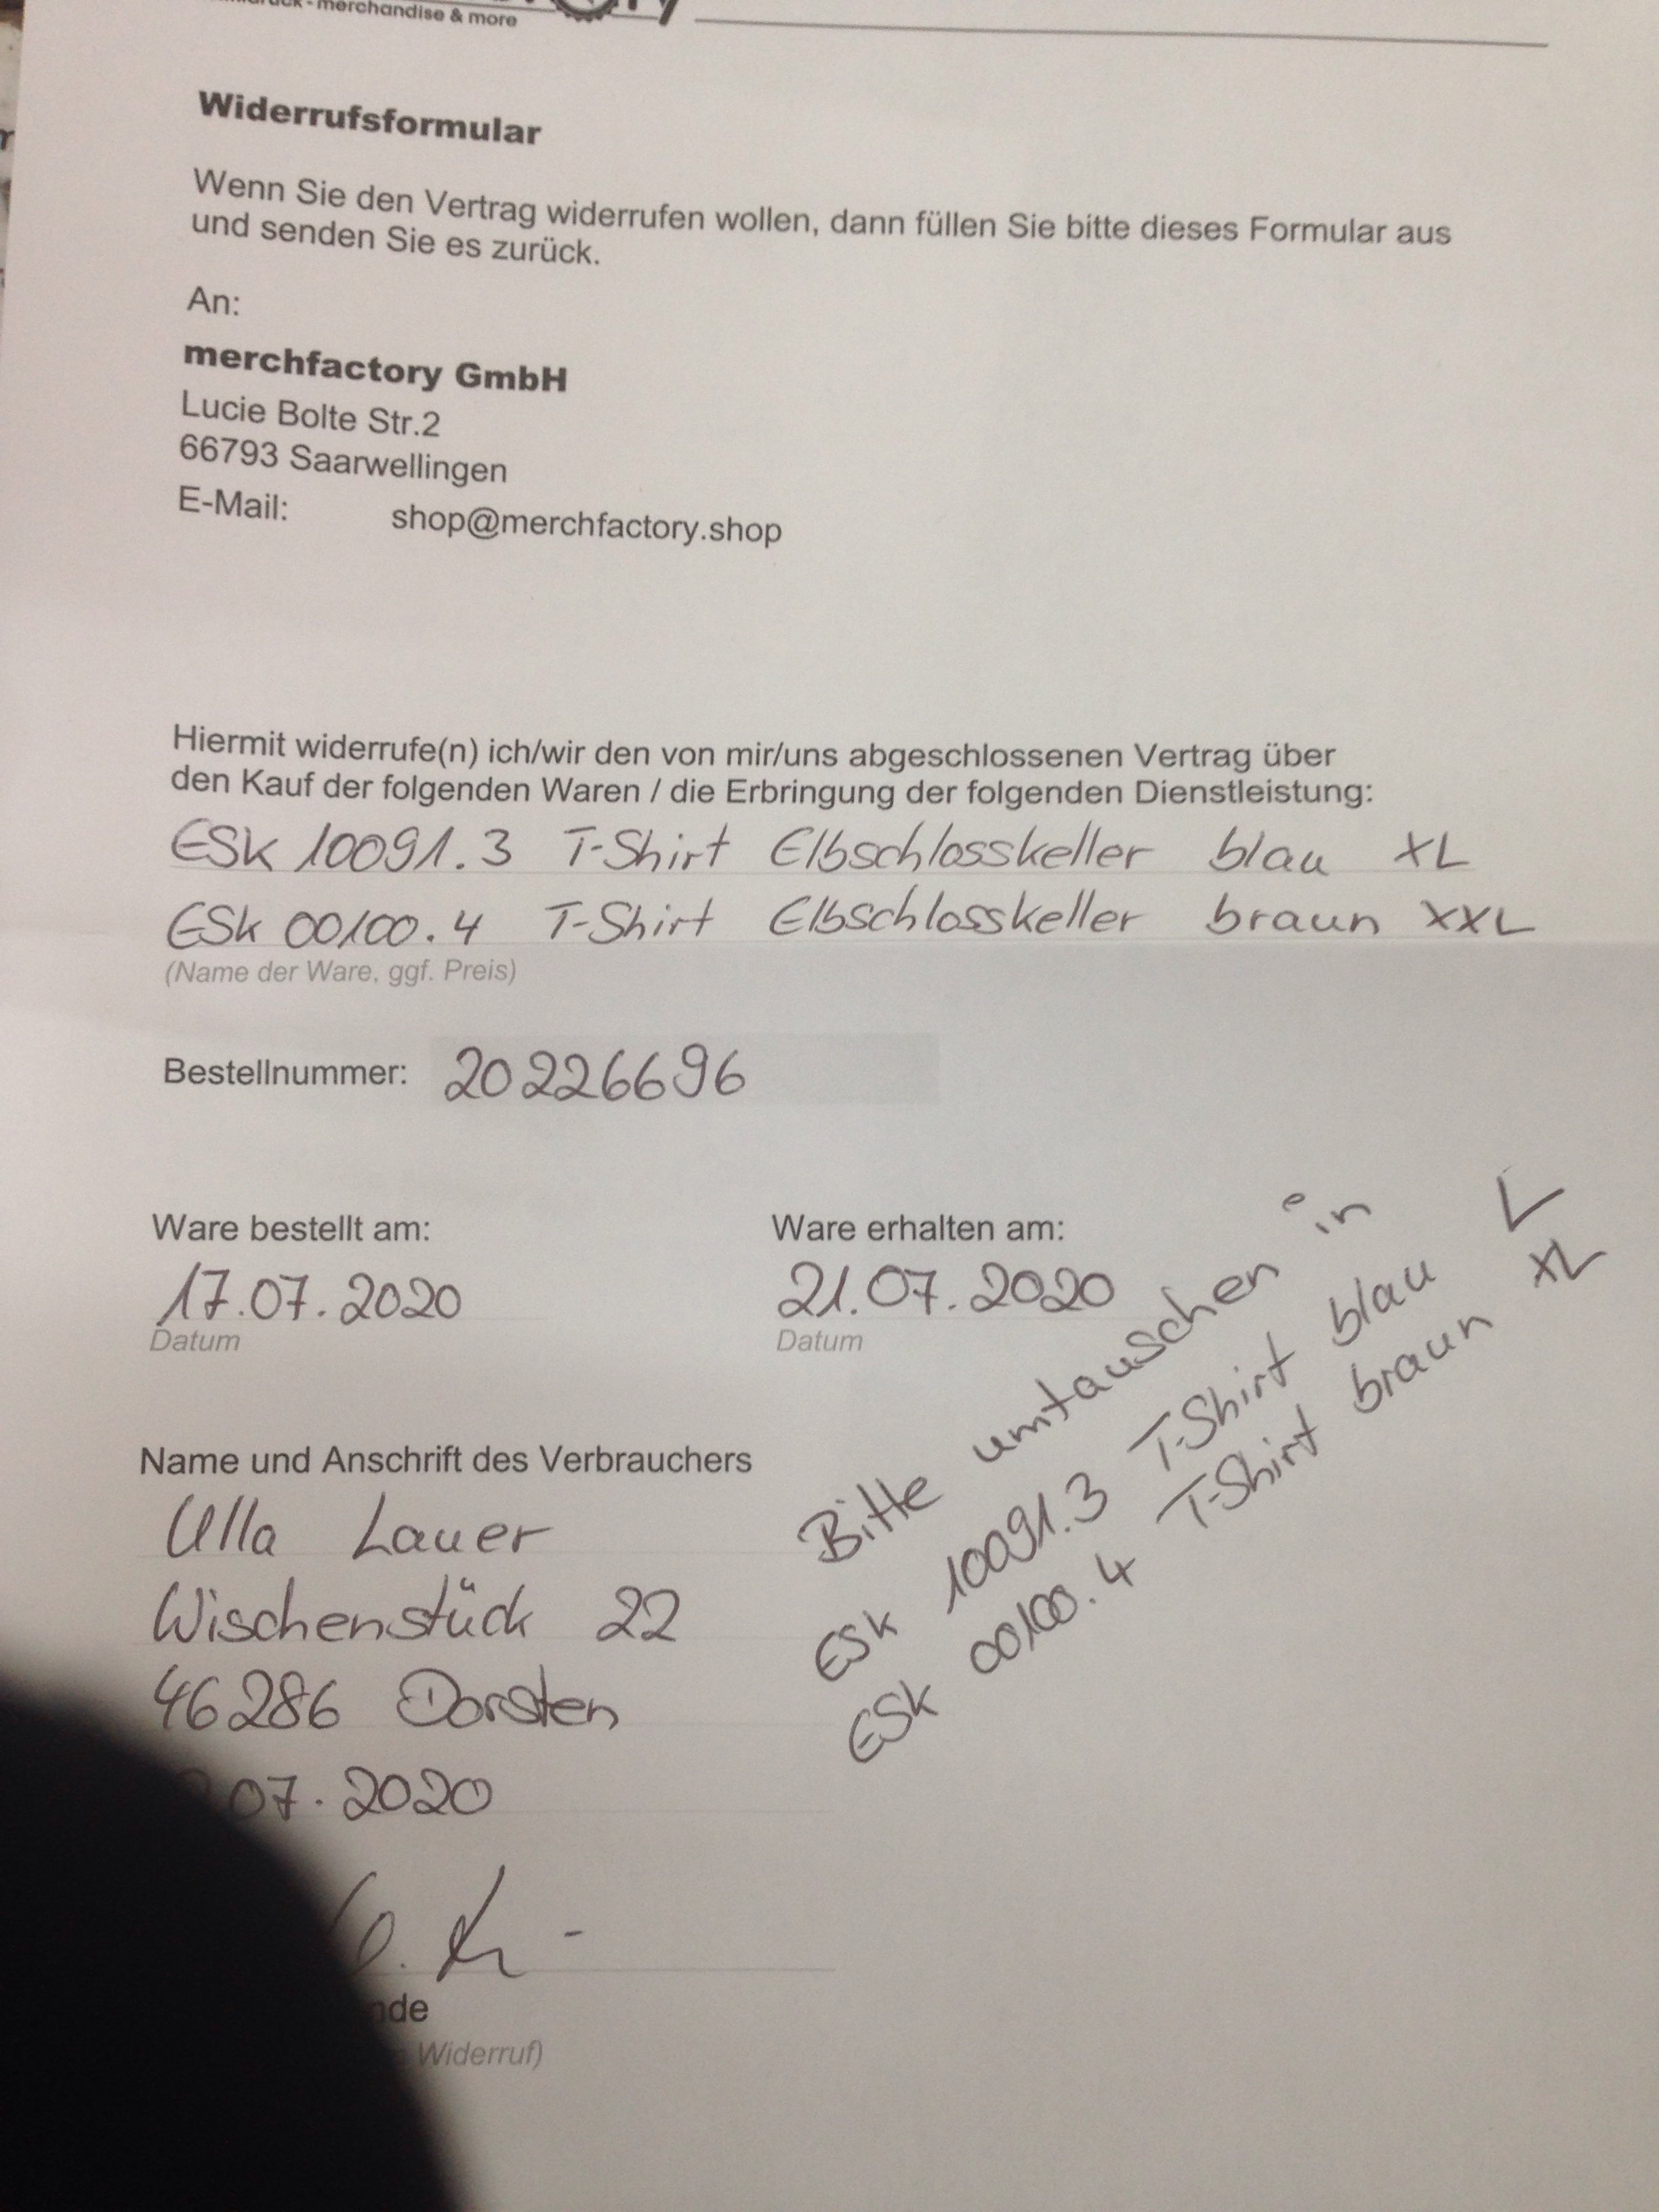 merchandise & more
Widerrufsformular
Wenn Sie den Vertrag widerrufen wollen, dann füllen Sie bitte dieses Formular aus
und senden Sie es zurück.
An:
merchfactory GmbH
Lucie Bolte Str.2
66793 Saarwellingen
E-Mail: shop@merchfactory.shop
Hiermit widerrufe(n) ich/wir den von mir/uns abgeschlossenen Vertrag über
den Kauf der folgenden Waren / die Erbringung der folgenden Dienstleistung:
ESK 10091.3 T-Shirt Elbschlosskeller blau XL
ESK 00100.4 T-Shirt Elbschlosskeller braun XXL
(Name der Ware, ggf. Preis)
Bestellnummer: 20226696
Ware bestellt am: Ware erhalten am:
17.07.2020 21.07.2020
Datum Datum
Bitte umtauschen in
ESK 10091.3 T-Shirt blau L
ESK 00100.4 T-Shirt braun XL
Name und Anschrift des Verbrauchers
Ulla Lauer
Wischenstück 22
46286 Dorsten
07.2020
Widerruf)